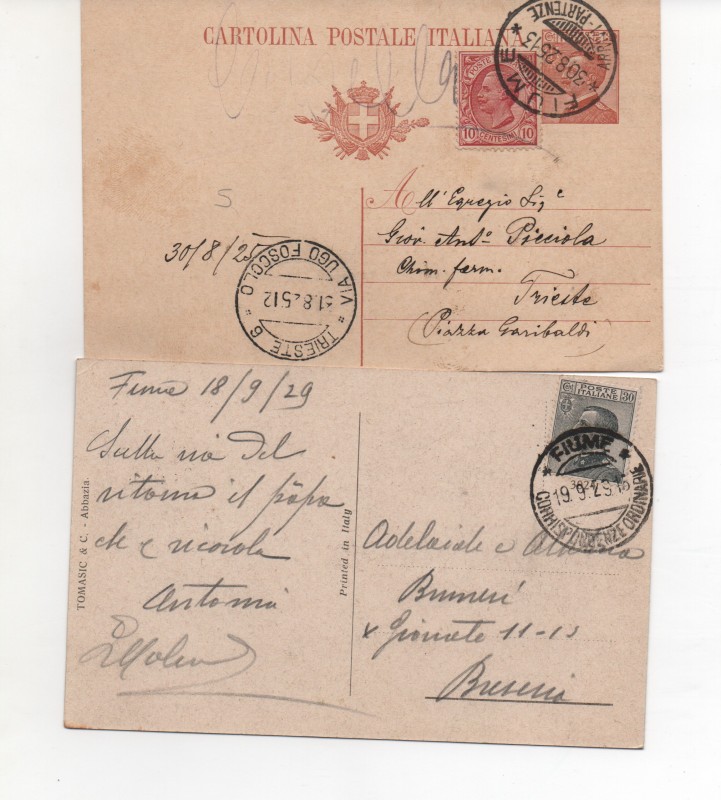 CARTOLINA POSTALE ITALIANA
FIUME
ARRIVI-PARTENZE
30.8.25.13
POSTE ITALIANE
10 CENTESIMI 10
S
30/8/25
All'Egregio Sigʳ
Giov. Antº Picciola
Chim. farm.
Trieste
(Piazza Garibaldi)
TRIESTE 6
VIA UGO FOSCOLO
31.8.2512
Fiume 18/9/29
Sulla via del
ritorno il papa
che vi ricorda
TOMASIC & C. - Abbazia.
Printed in Italy
POSTE ITALIANE
30
FIUME
19.9.29.15
CORRISPONDENZE ORDINARIE
Adelaide e
X Giornate 11-13
Brescia